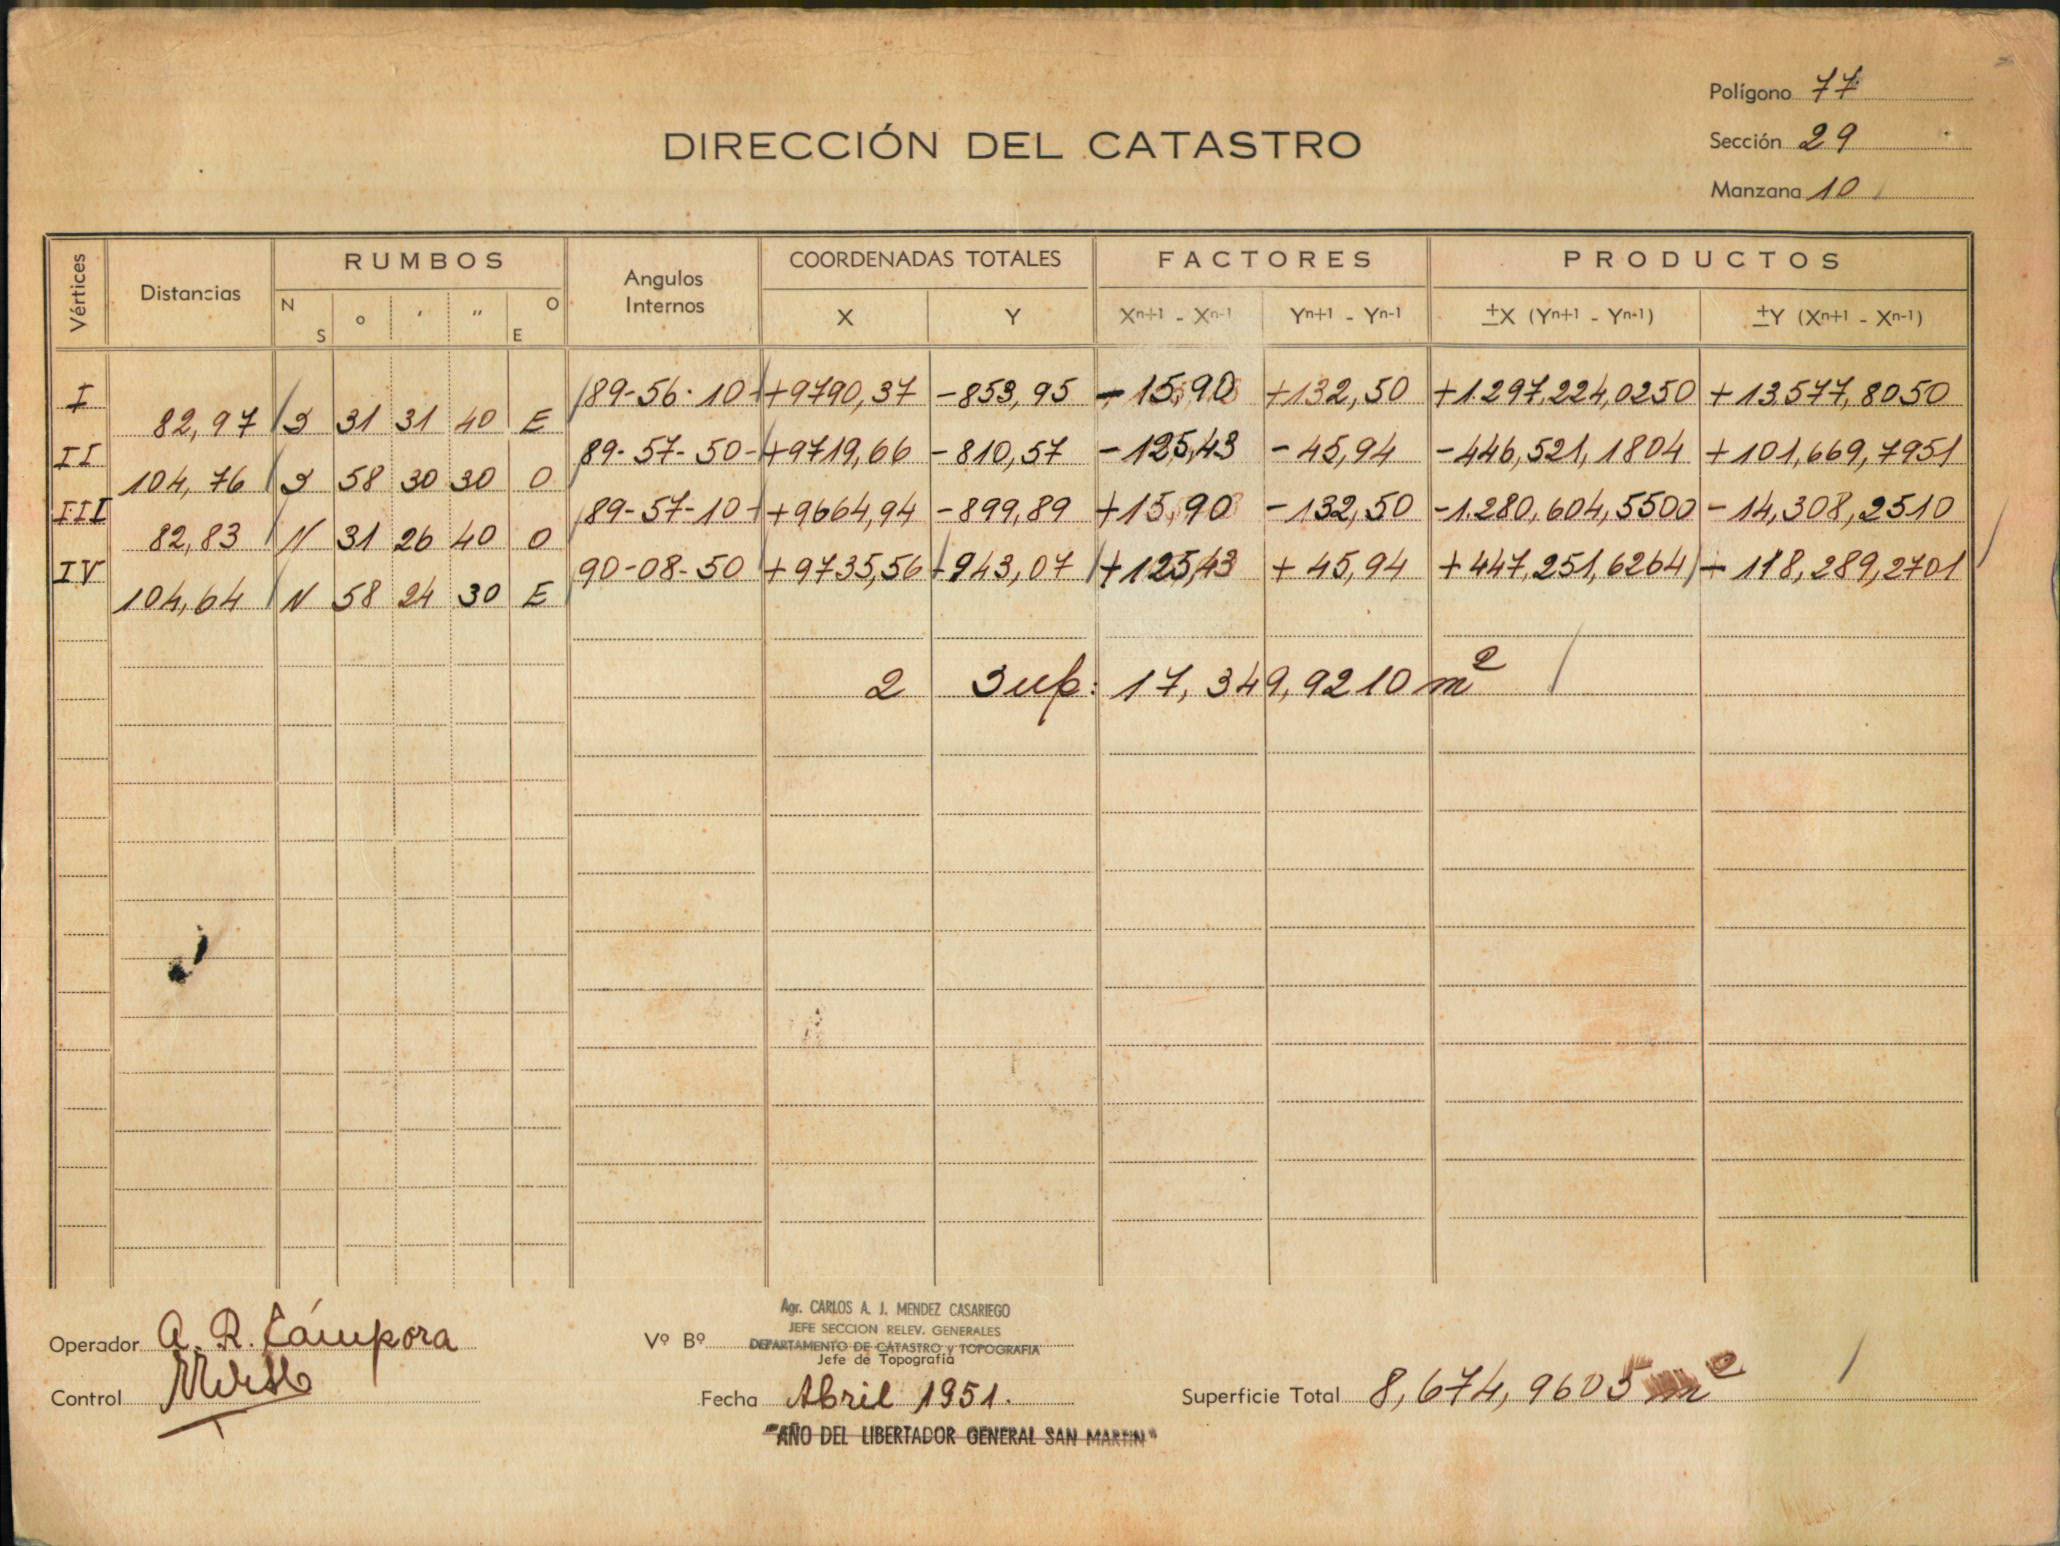 Polígono 77
DIRECCIÓN DEL CATASTRO
Sección 29
Manzana 10
Vértices Distancias RUMBOS Angulos Internos COORDENADAS TOTALES FACTORES PRODUCTOS
N S o ' " O E X Y Xn+1 - Xn-1 Yn+1 - Yn-1 ±X (Yn+1 - Yn-1) ±Y (Xn+1 - Xn-1)
I 89-56-10 +9790,37 -853,95 -15,90 +132,50 +1.297.224,0250 +13.577,8050
82,97 S 31 31 40 E
II 89-57-50 +9719,66 -810,57 -125,43 -45,94 -446,521,1804 +101,669,7951
104,76 S 58 30 30 O
III 89-57-10 +9664,94 -899,89 +15,90 -132,50 -1.280,604,5500 -14,308,2510
82,83 N 31 26 40 O
IV 90-08-50 +9735,56 -943,07 +125,43 +45,94 +447,251,6264 -118,289,2701
104,64 N 58 24 30 E
2 Sup: 17,349,9210 m2
Agr. CARLOS A. J. MENDEZ CASARIEGO
JEFE SECCION RELEV. GENERALES
Operador A. R. Cámpora Vº Bº DEPARTAMENTO DE CATASTRO y TOPOGRAFIA
Jefe de Topografía
Control Fecha Abril 1951. Superficie Total 8,674,9605 m2
"AÑO DEL LIBERTADOR GENERAL SAN MARTIN"